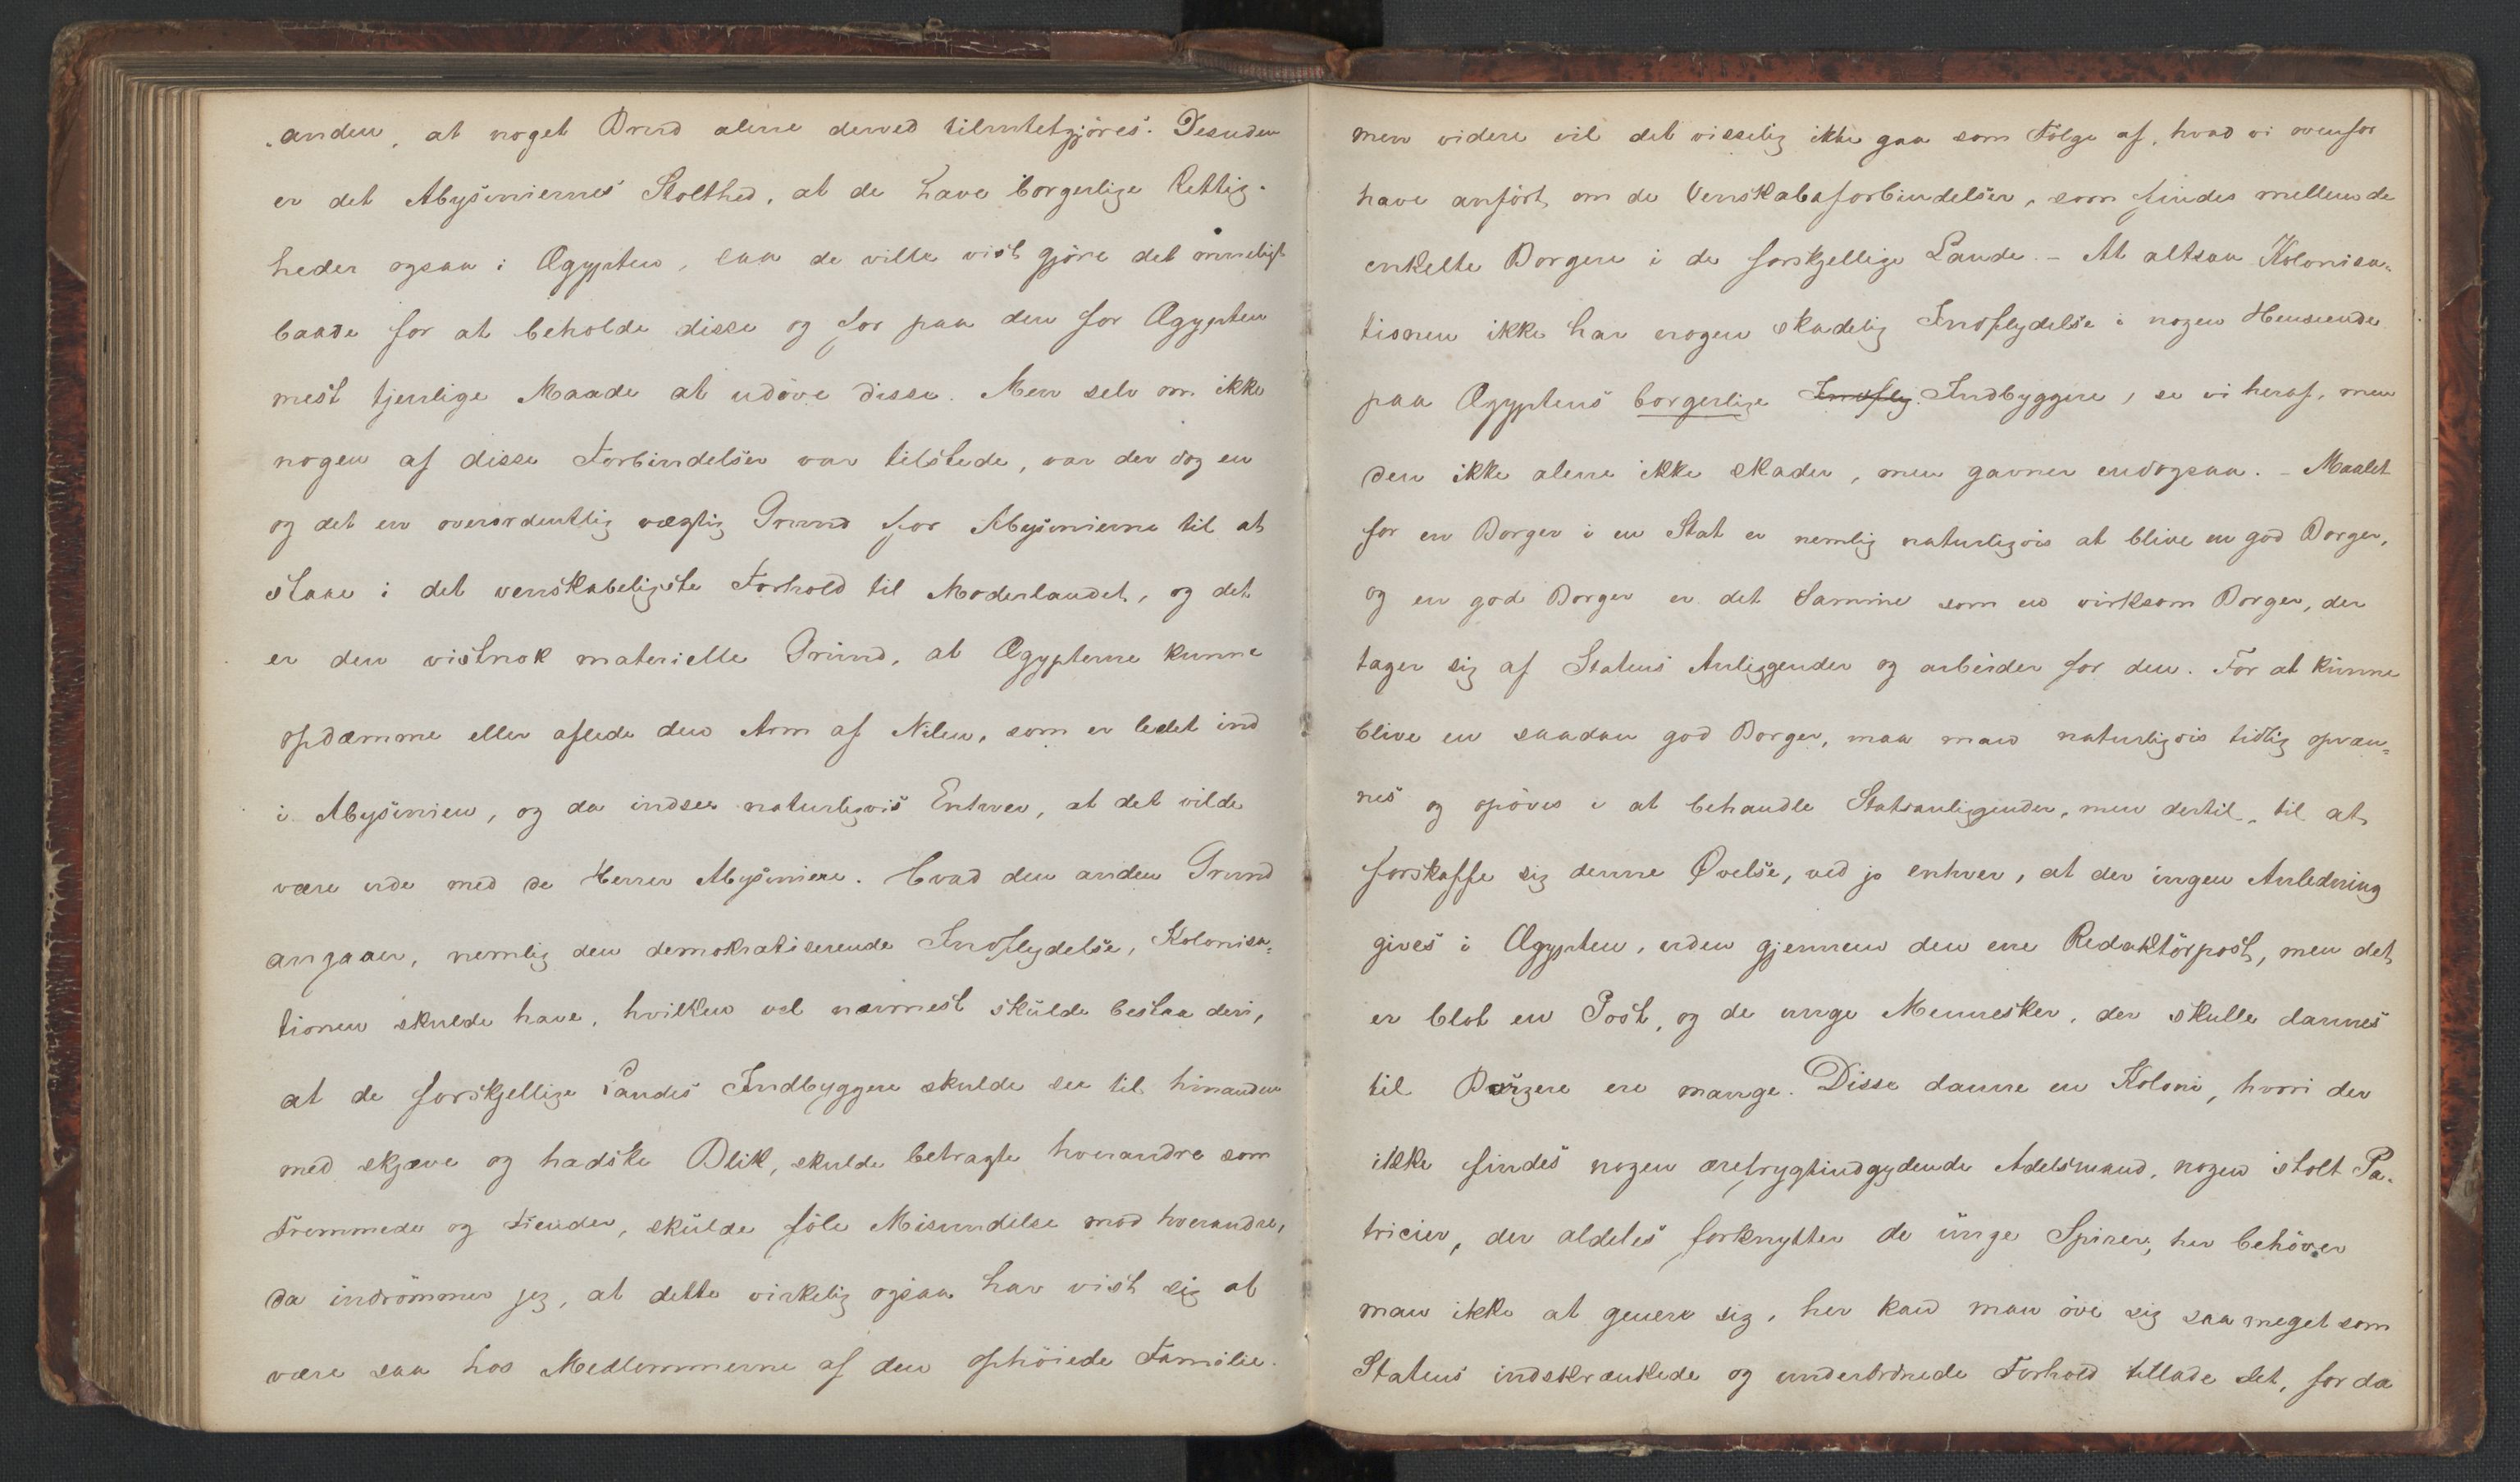 anden, at noget Brud alene derved tilintetgjöres. Desuden
er det Abysiniernes Stolthed, at de have borgerlige Rettig-
heder ogsaa i Ægypten, saa de ville vist gjöre det
baade for at beholde disse og for paa den for Ægypten
mest tjenlige Maade at udöve disse. Men selv om ikke
nogen af disse Forbindelser var tilstede, var der dog en
og det en overordentlig vægtig Grund for Abysinierne til at
staae i det venskabeligste Forhold til Moderlandet, og det
er den vistnok materielle Grund, at Ægypterne kunne
opdæmme eller aflede den Arm af Nilen, som er ledet ind
i Abysinien, og da indser naturligvis Enhver, at det vilde
være ude med de Herrer Abysiniere. Hvad den anden Grund
angaaer, nemlig den demokratiserende Indflydelse, Kolonisa=
tionen skulde have, hvilken vel nærmest skulde bestaa deri,
at de forskjellige Landes Indbyggere skulde see til hinanden
med skjæve og hadske Blik, skulde betragte hverandre som
Fremmede og Fiender, skulde föle Misundelse mod hverandre,
da indrömmer jeg, at dette virkelig ogsaa har vist sig at
være saa hos Medlemmerne af den ophöiede Familie.
men videre vil det visselig ikke gaa som Fölge af, hvad vi ovenfor
have anfört om de Venskabsforbindelser, som findes mellem de
enkelte Borgere i de forskjellige Lande. - At altsaa Kolonisa=
tionen ikke har nogen skadelig Indflydelse i nogen Henseende
paa Ægyptens borgerlige Indfly. Indbyggere, se vi heraf, men
den ikke alene ikke skader, men gavner endogsaa. - Maalet
for en Borger i en Stat er nemlig naturligvis at blive en god Borger,
og en god Borger er det Samme som en virksom Borger, der
tager sig af Statens Anliggender og arbeider for den. For at kunne
blive en saadan god Borger, maa man naturligvis tidlig opvæn=
nes og opöves i at behandle Statsanliggender, men dertil, til at
forskaffe sig denne Övelse, ved jo enhver, at der ingen Anledning
gives i Ægypten, uden gjennem den ene Redaktörpost, men det
er blot en Post, og de unge Mennesker, der skulle dannes
til Borgere ere mange. Disse danne en Koloni, hvori der
ikke findes nogen ærefrygtindgydende Adelsmand, nogen stolt Pa-
tricier, der aldeles forknytter de unge Spirer, her behöver
man ikke at genere sig, her kan man öve sig saa meget som
Statens indskrænkede og underordnede Forhold tillade det, for da